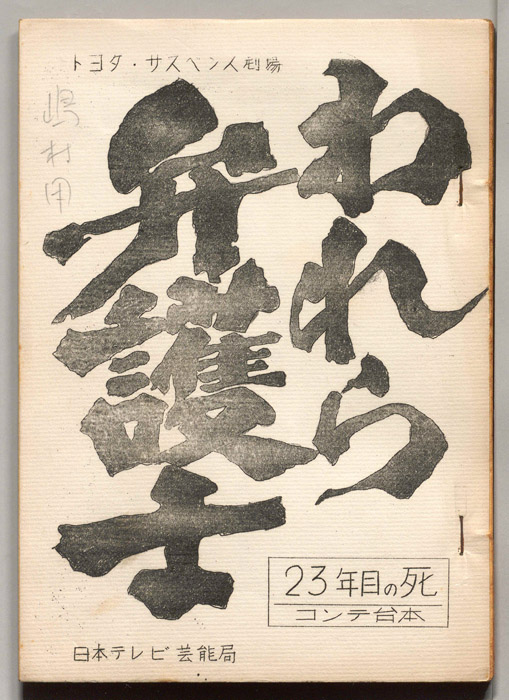 トヨタ・サスペンス劇場
われら
弁護士
嶋村用
23年目の死
コンテ台本
日本テレビ芸能局